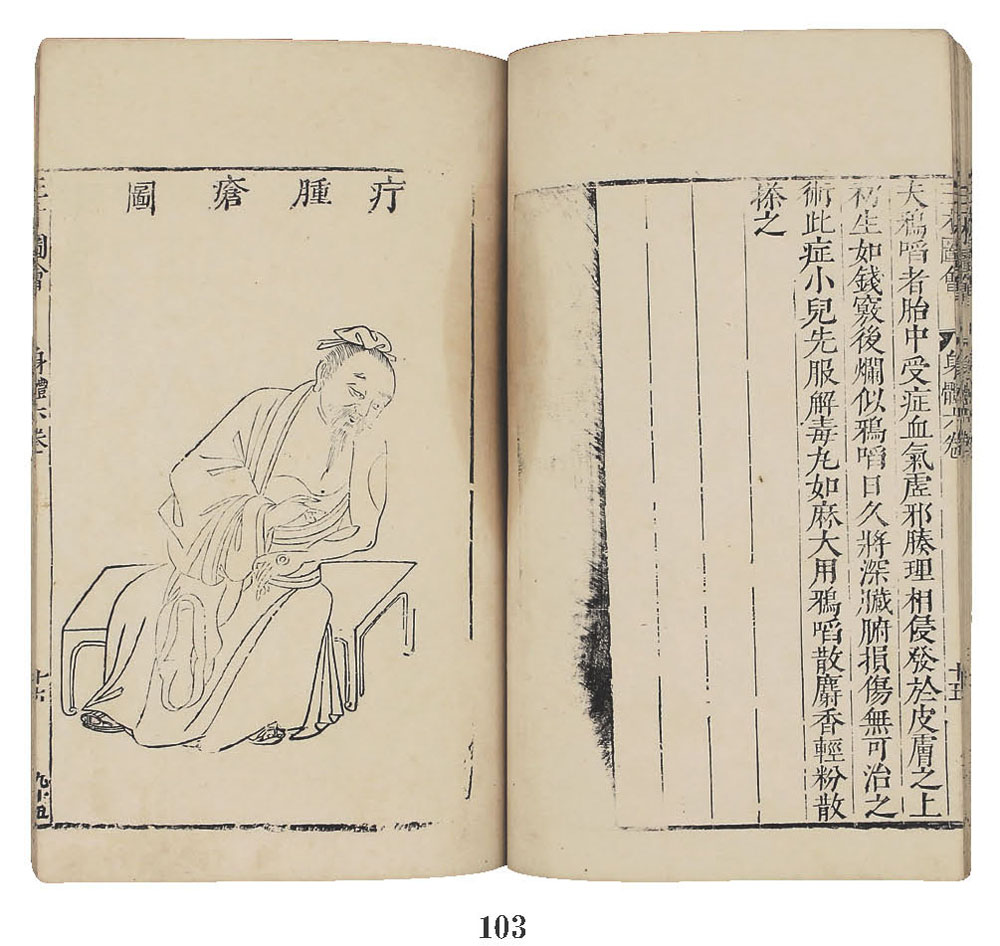 大鵶啗者胎中受症血氣虛邪腠理相侵發於皮膚之上
初生如錢竅後爛似鴉啗日久將深臟腑損傷無可治之
術此症小兒先服解毒丸如麻大用鴉啗散麝香輕粉散
搽之
三才圖會 身體六卷 十五
疔腫瘡圖
圖會 身體六卷 十六
103